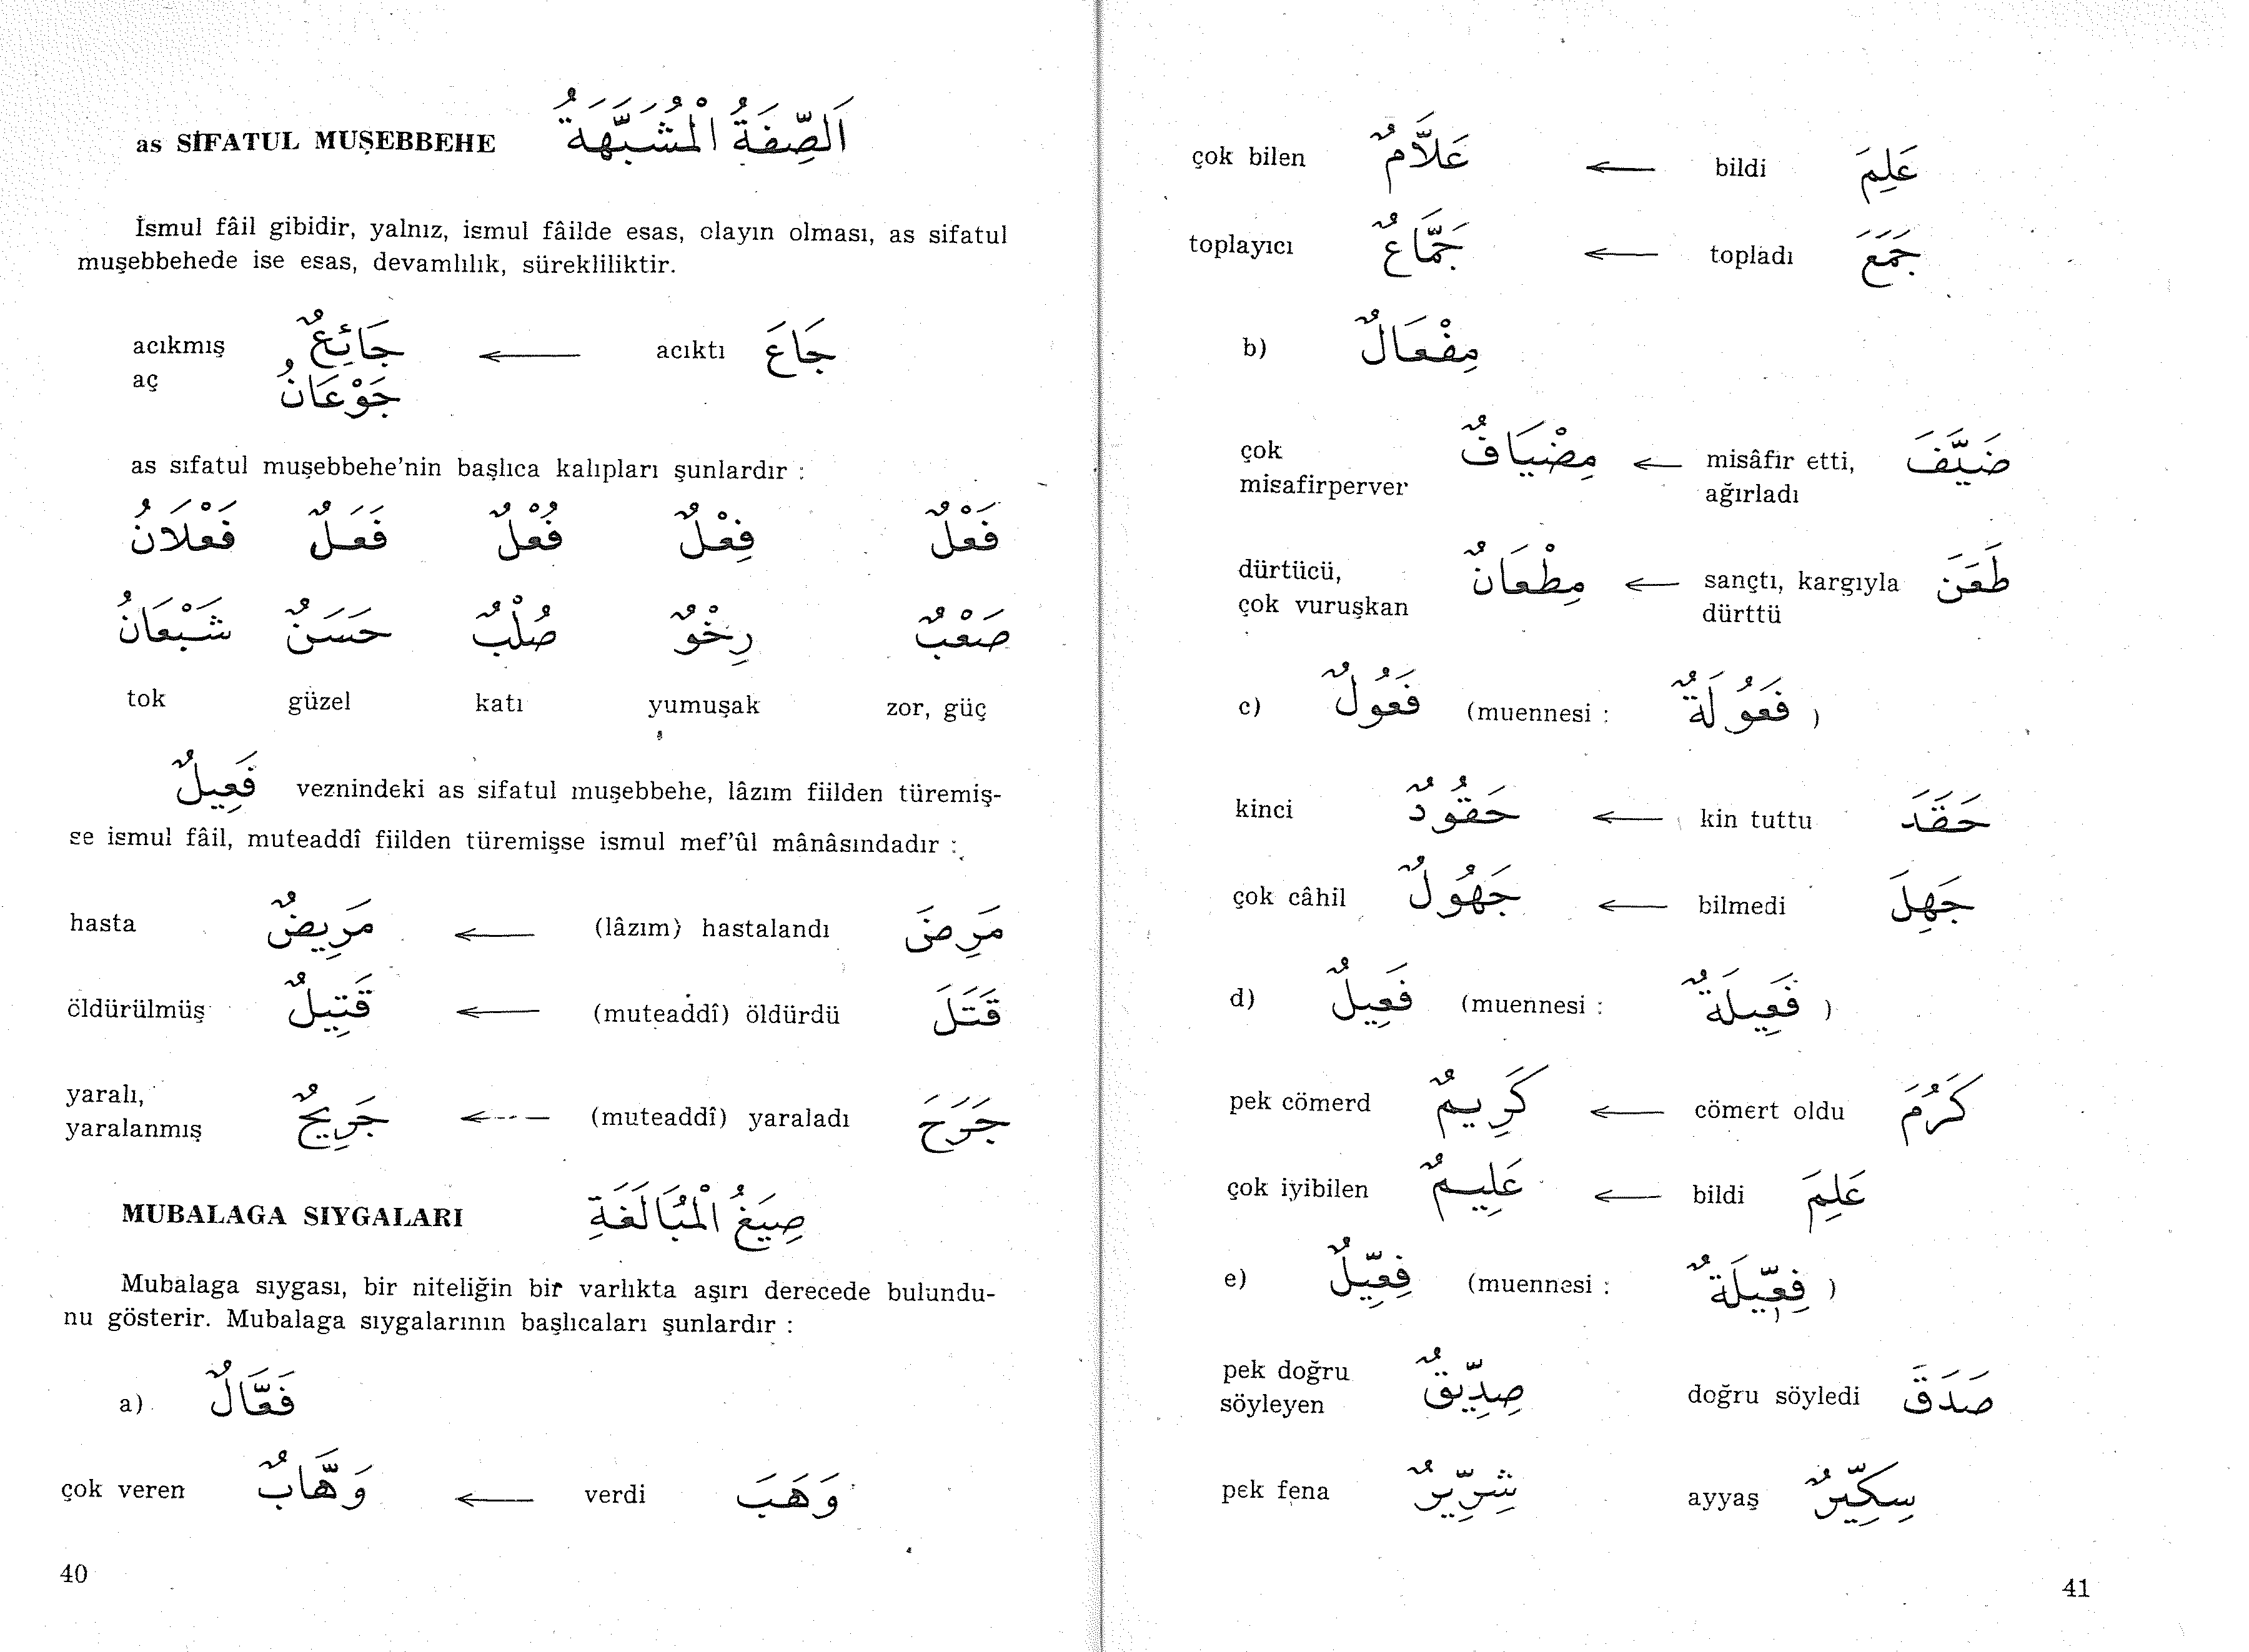 as SİFATUL MUŞEBBEHE اَلصِّفَةُ الْمُشَبَّهَةُ
İsmul fâil gibidir, yalnız, ismul fâilde esas, olayın olması, as sifatul
muşebbehede ise esas, devamlılık, sürekliliktir.
acıkmış جَائِعٌ ← acıktı جَاعَ
aç جَوْعَانُ
as sıfatul muşebbehe'nin başlıca kalıpları şunlardır :
فَعْلَانُ فَعَلٌ فُعْلٌ فِعْلٌ فَعْلٌ
شَبْعَانُ حَسَنٌ صُلْبٌ رِخْوٌ صَعْبٌ
tok güzel katı yumuşak zor, güç
فَعِيلٌ veznindeki as sifatul muşebbehe, lâzım fiilden türemiş-
se ismul fâil, muteaddî fiilden türemişse ismul mef'ûl mânâsındadır :
hasta مَرِيضٌ ← (lâzım) hastalandı مَرِضَ
öldürülmüş قَتِيلٌ ← (muteaddî) öldürdü قَتَلَ
yaralı,
yaralanmış جَرِيحٌ ← (muteaddî) yaraladı جَرَحَ
MUBALAGA SIYGALARI صِيَغُ الْمُبَالَغَةِ
Mubalaga sıygası, bir niteliğin bir varlıkta aşırı derecede bulundu-
nu gösterir. Mubalaga sıygalarının başlıcaları şunlardır :
a) فَعَّالٌ
çok veren وَهَّابٌ ← verdi وَهَبَ
40
çok bilen عَلَّامٌ ← bildi عَلِمَ
toplayıcı جَمَّاعٌ ← topladı جَمَعَ
b) مِفْعَالٌ
çok
misafirperver مِضْيَافٌ ← misâfir etti,
ağırladı ضَيَّفَ
dürtücü,
çok vuruşkan مِطْعَانٌ ← sançtı, kargıyla
dürttü طَعَنَ
c) فَعُولٌ (muennesi : فَعُولَةٌ )
kinci حَقُودٌ ← kin tuttu حَقَدَ
çok câhil جَهُولٌ ← bilmedi جَهِلَ
d) فَعِيلٌ (muennesi : فَعِيلَةٌ )
pek cömerd كَرِيمٌ ← cömert oldu كَرُمَ
çok iyibilen عَلِيمٌ ← bildi عَلِمَ
e) فِعِّيلٌ (muennesi : فِعِّيلَةٌ )
pek doğru
söyleyen صِدِّيقٌ doğru söyledi صَدَقَ
pek fena شِرِّيرٌ ayyaş سِكِّيرٌ
41